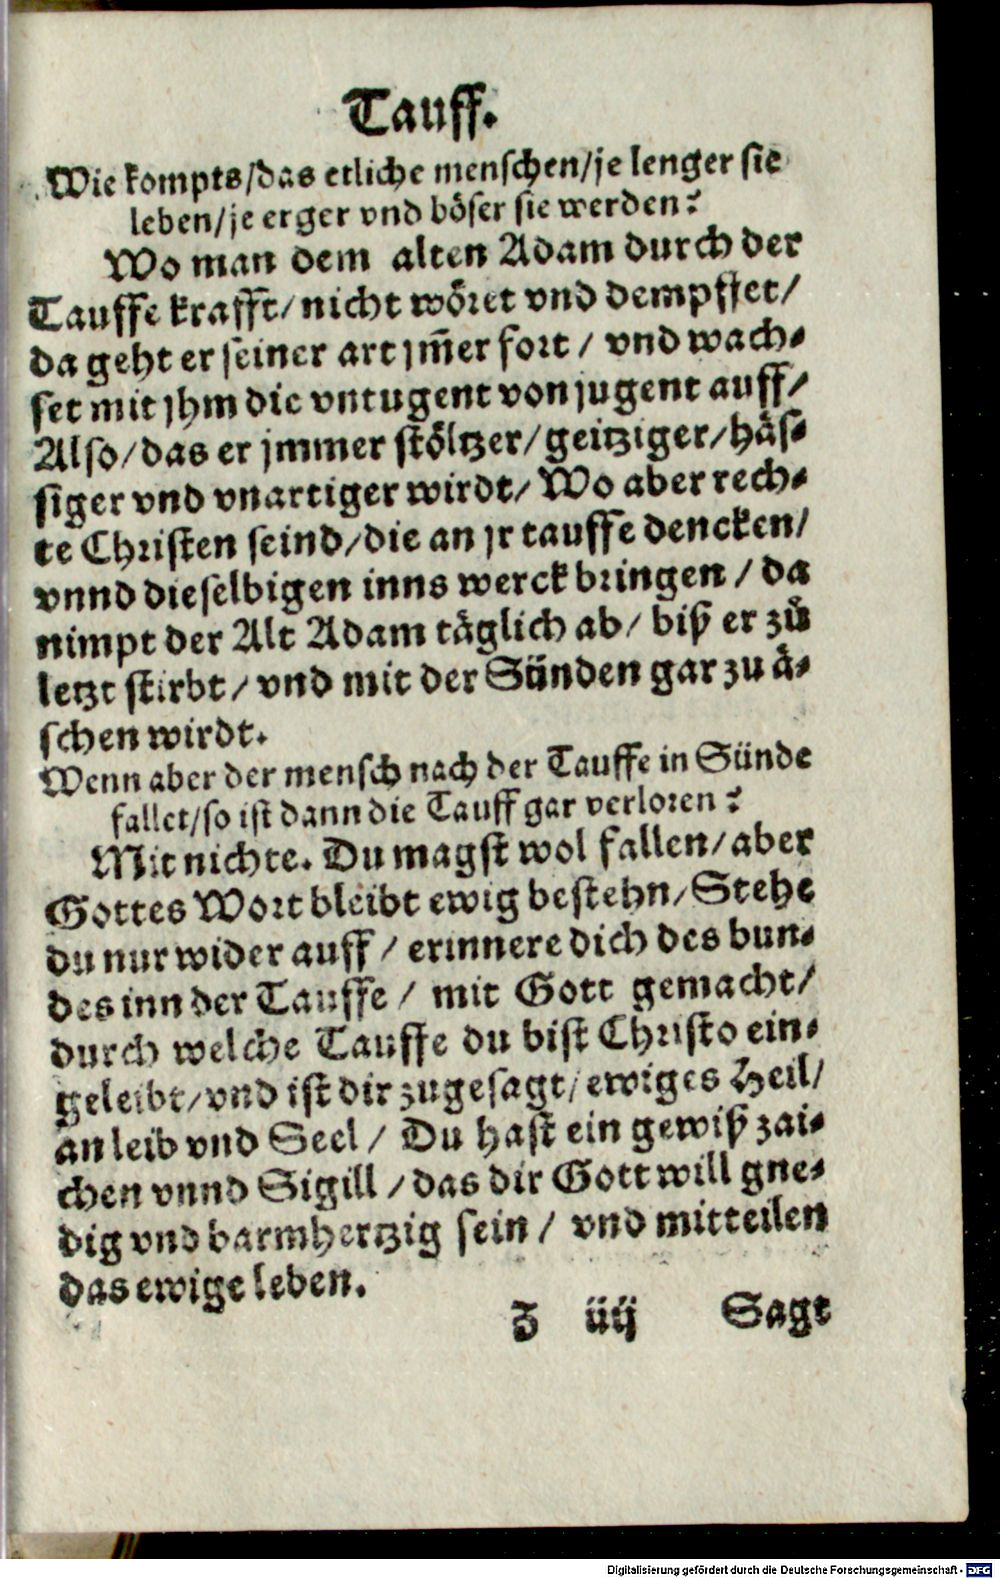 Tauff.
Wie kompts/das etliche menschen/je lenger sie
leben/je erger vnd böser sie werden?
Wo man dem alten Adam durch der
Tauffe krafft/nicht wöret vnd dempffet/
da geht er seiner art jm̃er fort/ vnd wach-
set mit jhm die vntugent von jugent auff/
Also/das er jmmer stöltzer/geitziger/häs-
siger vnd vnartiger wirdt/ Wo aber rech-
te Christen seind/die an jr tauffe dencken/
vnnd dieselbigen inns werck bringen/ da
nimpt der Alt Adam täglich ab/ biß er zů
letzt stirbt/ vnd mit der Sünden gar zu ä-
schen wirdt.
Wenn aber der mensch nach der Tauffe in Sünde
fallet/so ist dann die Tauff gar verloren?
Mit nichte. Du magst wol fallen/aber
Gottes Wort bleibt ewig bestehn/Stehe
du nur wider auff/ erinnere dich des bun-
des inn der Tauffe/ mit Gott gemacht/
durch welche Tauffe du bist Christo ein-
geleibt/vnd ist dir zugesagt/ewiges Heil/
an leib vnd Seel/ Du hast ein gewiß zai-
chen vnnd Sigill/das dir Gott will gne-
dig vnd barmhertzig sein/ vnd mitteilen
das ewige leben.
Z iiij Sagt
Digitalisierung gefördert durch die Deutsche Forschungsgemeinschaft - DFG